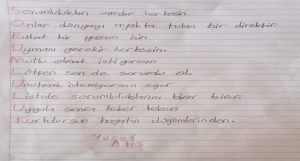 Sorumlulukları vardır herkesin.
Onlar dünyayı ayakta tutan bir direktir
Rahat bir yaşam için
Uyması gerekir herkesin.
Mutlu olmak istiyorsan
Lütfen sen de sorumlu ol.
Unutmak istemiyorsan eğer
Listele sorumluluklarını birer birer.
Uygula sonra teker teker
Kurtulursun hayatın düğümlerinden.
Yusuf